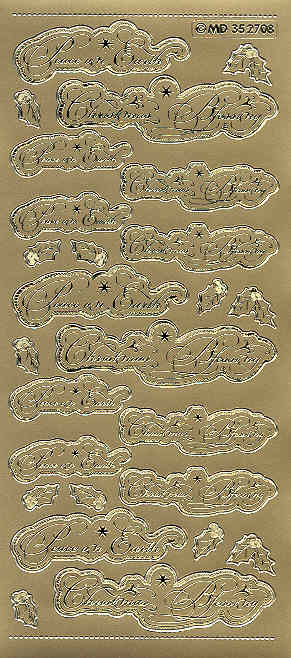 © MD 352708
Peace on Earth
Christmas Blessing
Peace on Earth
Christmas Blessing
Peace on Earth
Christmas Blessing
Peace on Earth
Christmas Blessing
Peace on Earth
Christmas Blessing
Peace on Earth
Christmas Blessing
Peace on Earth
Christmas Blessing